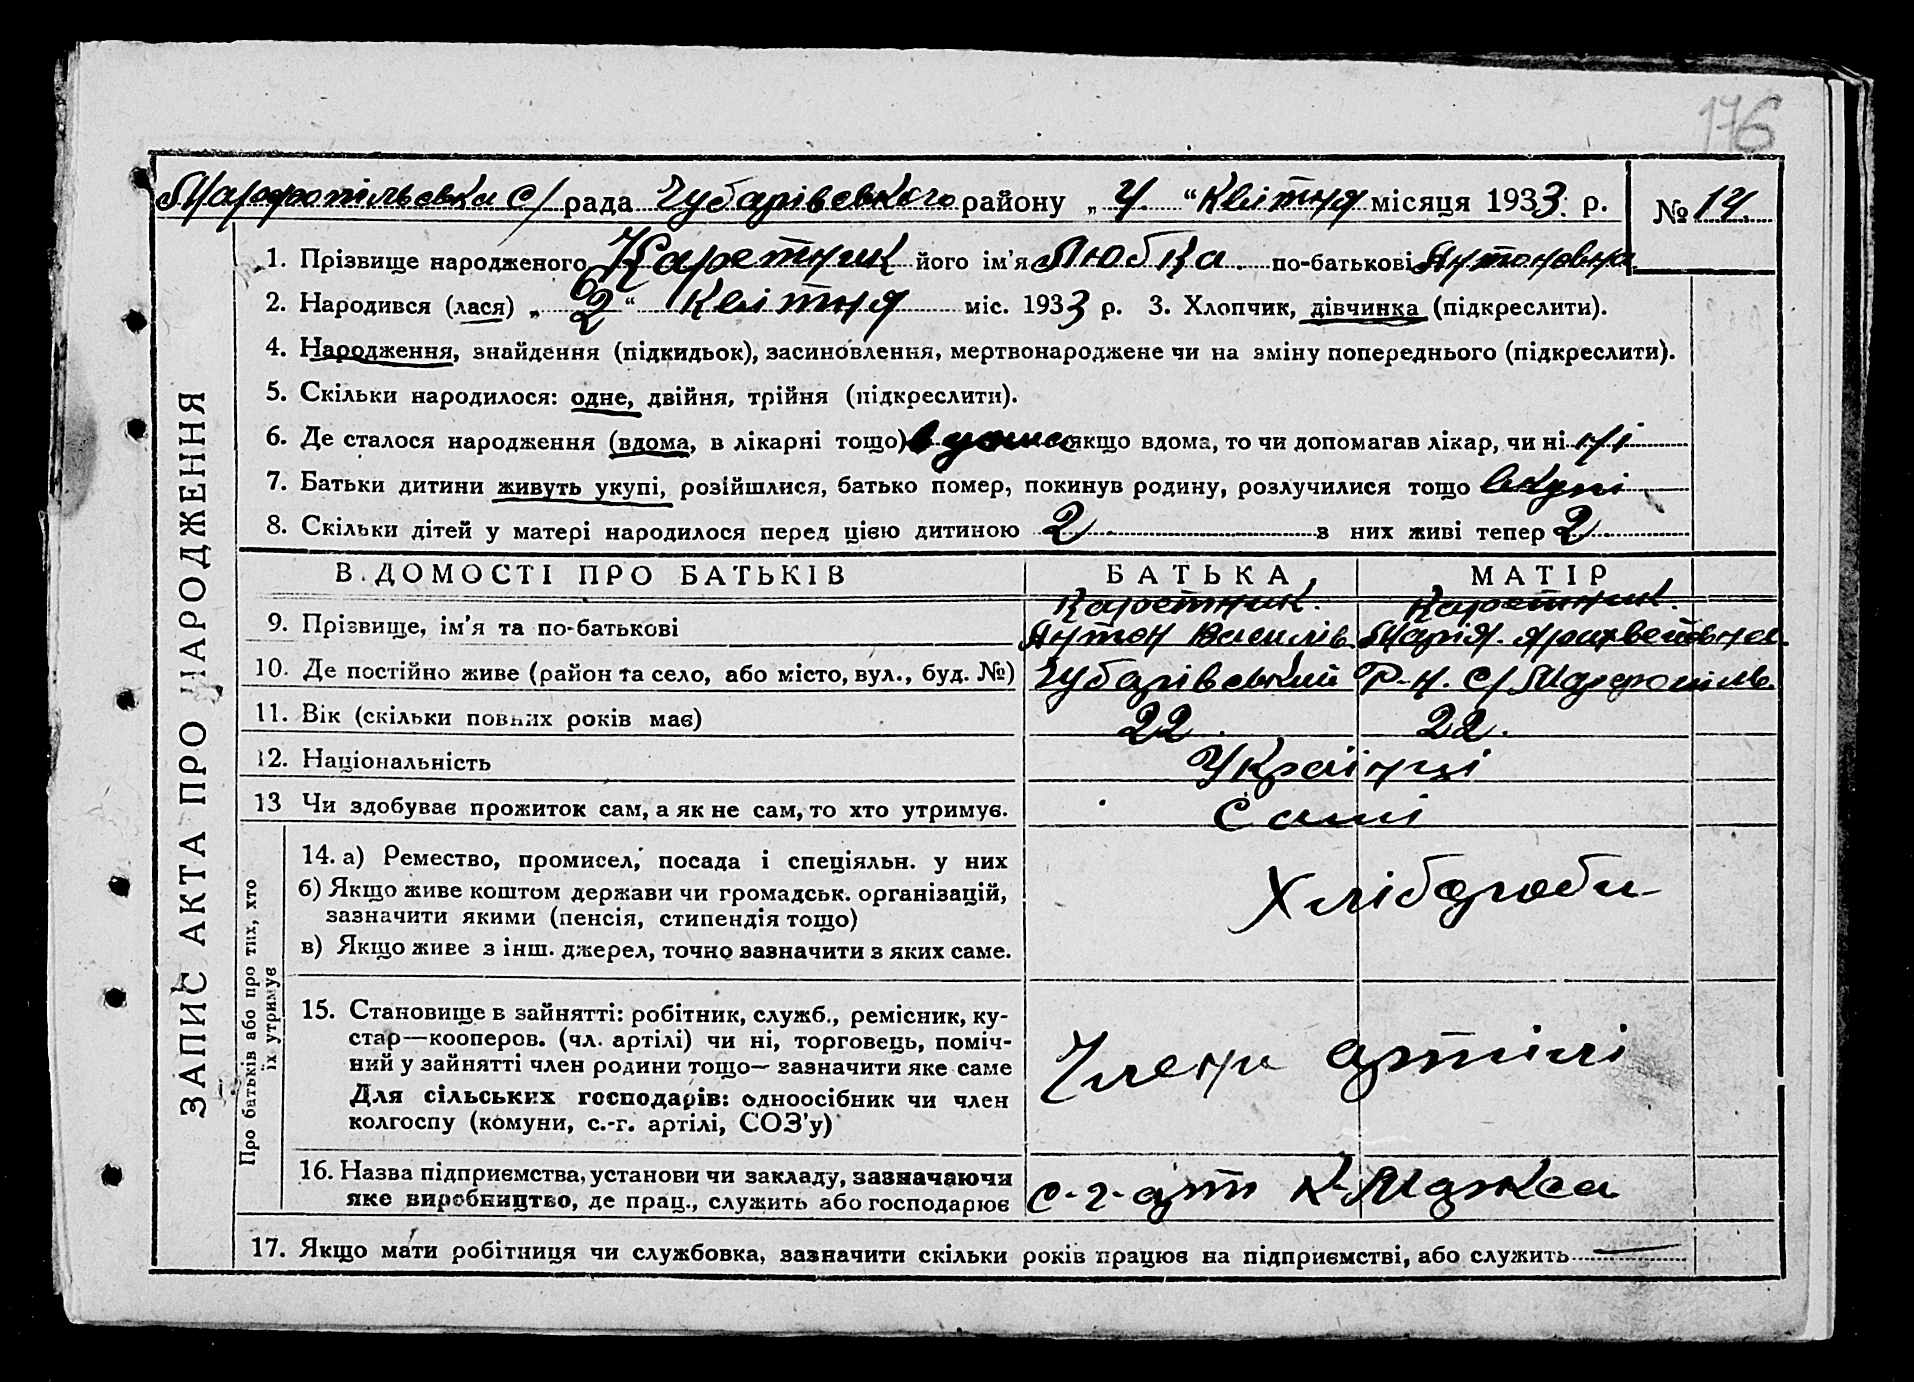 176
Марфопільська с/ рада Чубарівського району „ 4 “ Квітня місяця 1933 р. № 14.
1. Прізвище народженого Каретник його ім'я Любка по-батькові Антоновна
2. Народився (лася) „ 2 “ Квітня міс. 1933 р. 3. Хлопчик, дівчинка (підкреслити).
4. Народження, знайдення (підкидьок), засиновлення, мертвонароджене чи на зміну попереднього (підкреслити).
5. Скільки народилося: одне, двійня, трійня (підкреслити).
6. Де сталося народження (вдома, в лікарні тощо) вдома якщо вдома, то чи допомагав лікар, чи ні ні
7. Батьки дитини живуть укупі, розійшлися, батько помер, покинув родину, розлучилися тощо вкупі
8. Скільки дітей у матері народилося перед цією дитиною 2 з них живі тепер 2
ВІДОМОСТІ ПРО БАТЬКІВ БАТЬКА МАТІР
Каретник. Каретник.
9. Прізвище, ім'я та по-батькові Антон Василів. Марія.
10. Де постійно живе (район та село, або місто, вул., буд. №) Чубарівський Р-н. с/ Марфопіль.
11. Вік (скільки повних років має) 22. 22.
12. Національність Українці
13 Чи здобуває прожиток сам, а як не сам, то хто утримує. Самі
14. а) Ремество, промисел, посада і спеціяльн. у них
б) Якщо живе коштом держави чи громадськ. організацій,
зазначити якими (пенсія, стипендія тощо)
в) Якщо живе з інш. джерел, точно зазначити з яких саме.
Хлібороби
15. Становище в зайнятті: робітник, служб., ремісник, ку-
стар—кооперов. (чл. артілі) чи ні, торговець, поміч-
ний у зайнятті член родини тощо— зазначити яке саме
Для сільських господарів: одноосібник чи член
колгоспу (комуни, с.-г. артілі, СОЗ'у)
Члени артілі
16. Назва підприємства, установи чи закладу, зазначаючи
яке виробництво, де прац., служить або господарює
с-г-арт К-Маркса
17. Якщо мати робітниця чи службовка, зазначити скільки років працює на підприємстві, або служить —
ЗАПИС АКТА ПРО НАРОДЖЕННЯ
Про батьків або про тих, хто
їх утримує